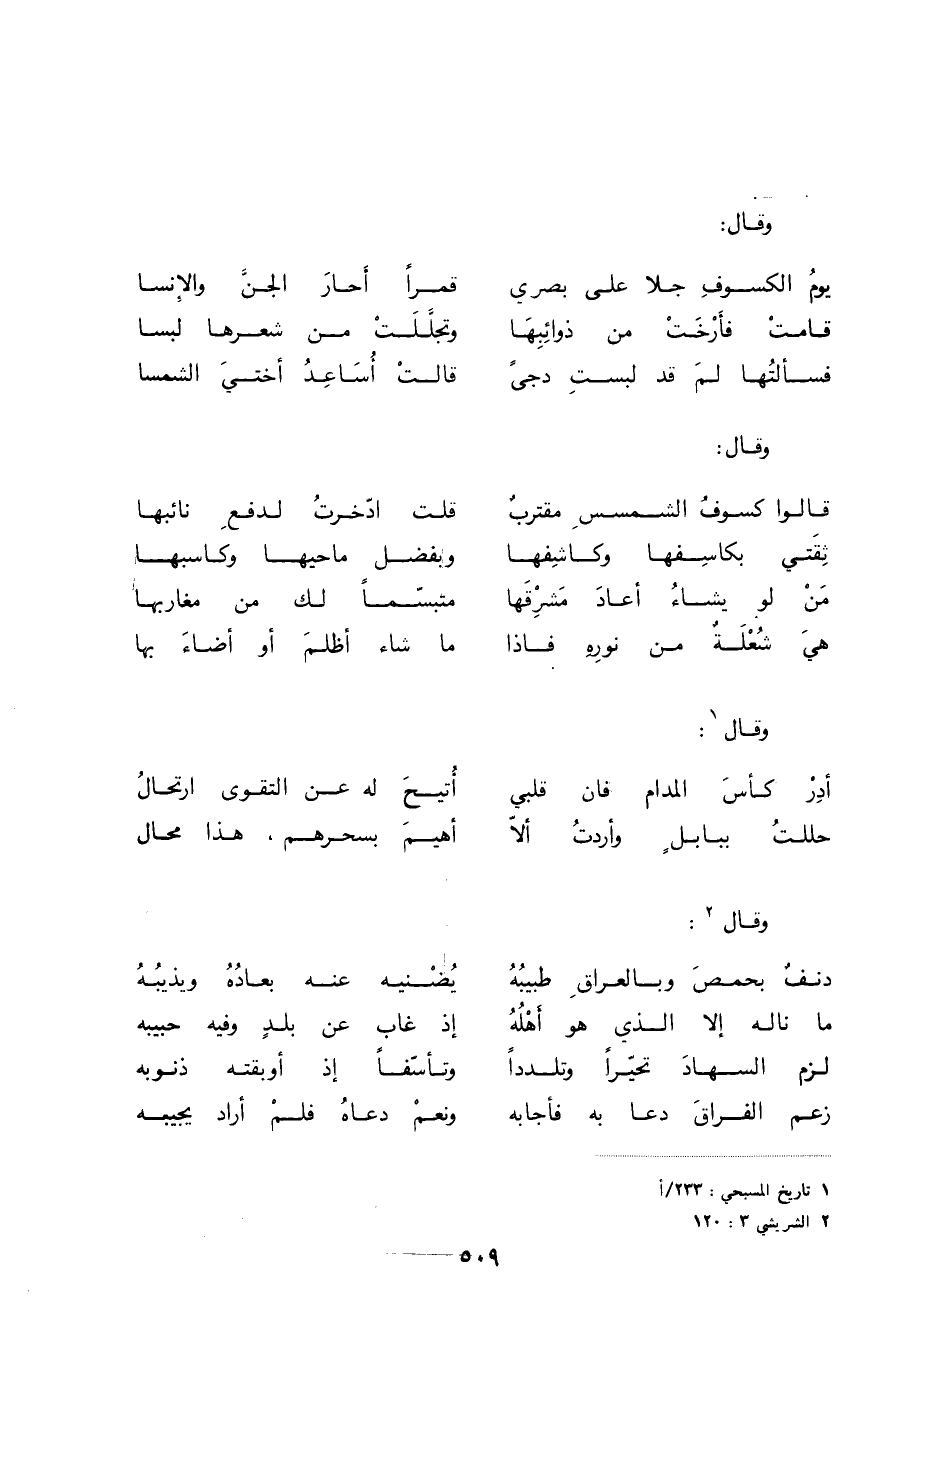 وقال:
يومُ الكسوفِ جلا على بصري قمراً أحارَ الجنَّ والإنسا
قامتْ فأَرْخَتْ من ذوائِبِهَا وتجلَّلَتْ من شعرها لبسا
فسألتُها لمَ قد لبستِ دجىً قالتْ أُسَاعِدُ أختيَ الشمسا
وقال:
قالوا كسوفُ الشمسِ مقتربٌ قلت ادّخرتُ لدفعِ نائبها
ثِقَتي بكاسِفها وكاشِفها وبفضل ماحيها وكاسبها
مَنْ لو يشاءُ أعادَ مَشرْقَها متبسّماً لك من مغاربها
هيَ شُعْلَةٌ من نورِهِ فاذا ما شاء أظلمَ أو أضاءَ بها
وقال ١ :
أدِرْ كأسَ المدام فان قلبي أُتيحَ له عن التقوى ارتحالُ
حللتُ ببابلٍ وأردتُ ألاّ أهيمَ بسحرهم ، هذا محال
وقال ٢ :
دنفٌ بحمصَ وبالعراقِ طبيبُهُ يُضْنيه عنه بعادُهُ ويذيبُهُ
ما ناله إلا الذي هو أَهْلُهُ إذ غاب عن بلدٍ وفيه حبيبه
لزم السهادَ تحيّراً وتلدداً وتأسّفاً إذ أوبقته ذنوبه
زعم الفراقَ دعا به فأجابه ونعمْ دعاهُ فلمْ أراد يجيبه
١ تاريخ المسبحي : ٢٣٣/أ
٢ الشريشي ٣ : ١٢٠
٥٠٩